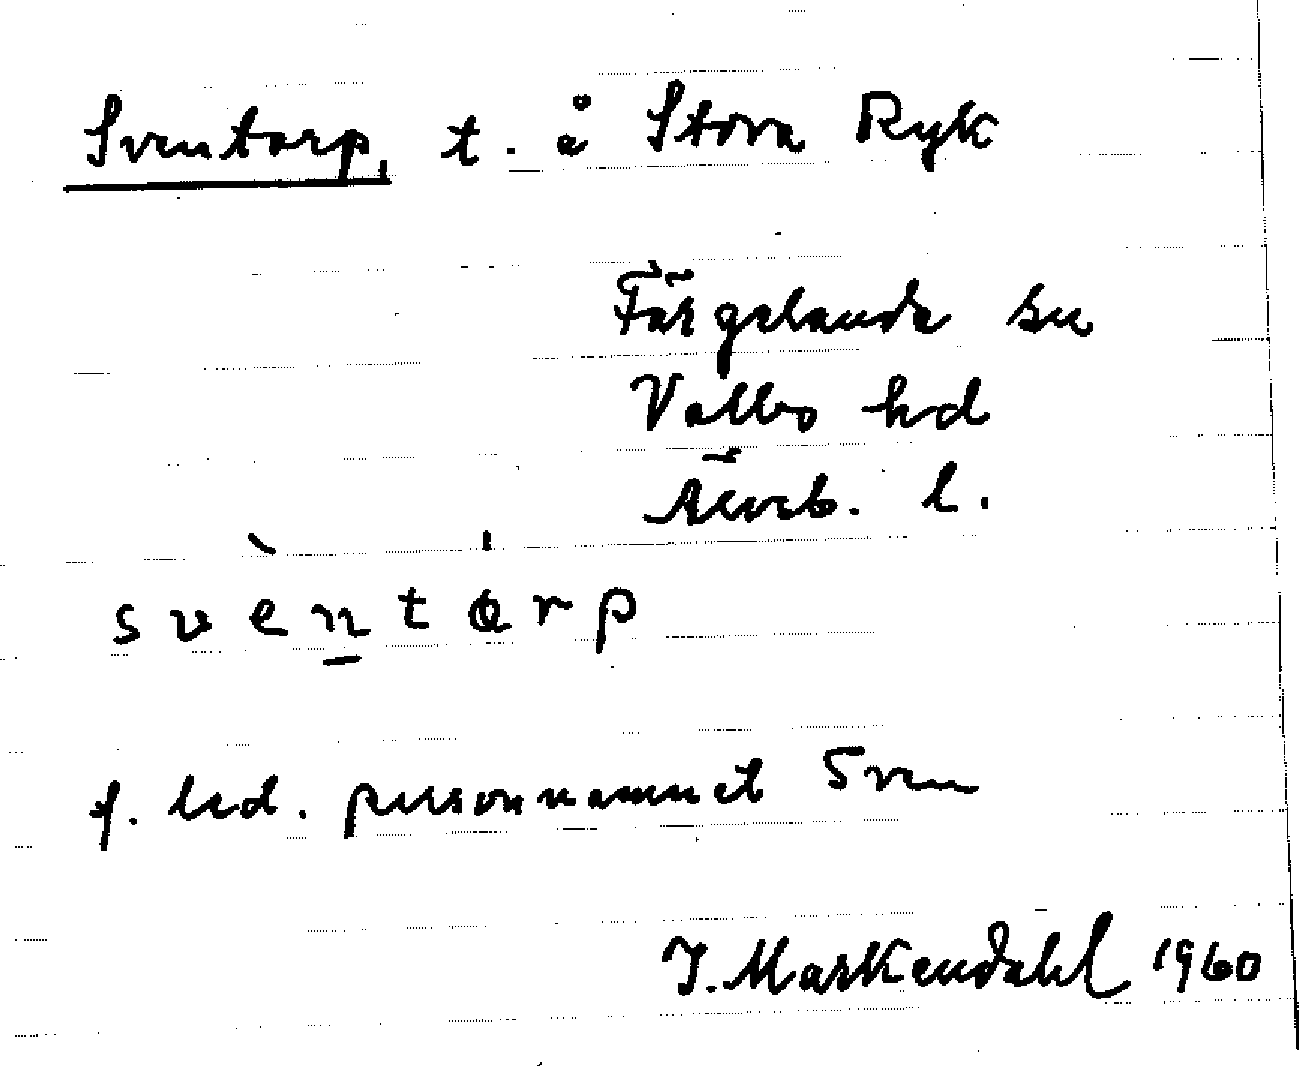 Sventorp, t. å Stora Ryk
Färgelanda sn
Valbo hd
Älvsb. l.
svèntɵrp
f. led. personnamnet Sven
I. Markendahl 1960